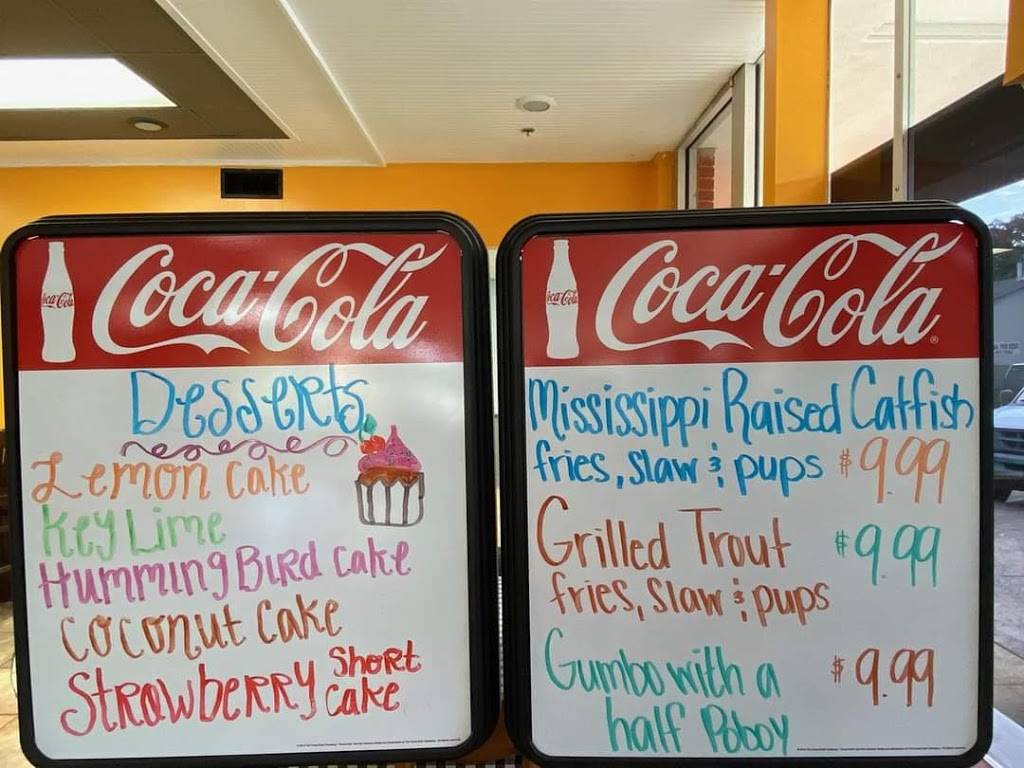 Coca-Cola
Coca-Cola
Desserts
Lemon Cake
Key Lime
Humming Bird Cake
Coconut Cake
Strawberry Short Cake
Coca-Cola
Coca-Cola®
Mississippi Raised Catfish
fries, slaw & pups $9.99
Grilled Trout $9.99
fries, slaw & pups
Gumbo with a $9.99
half Poboy